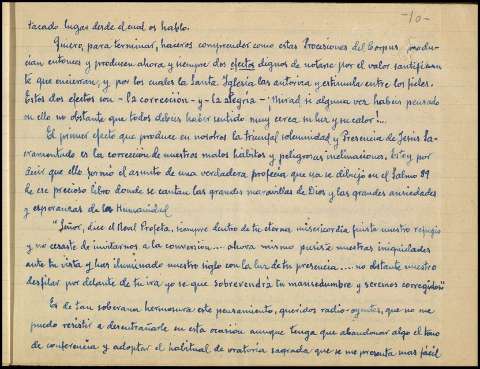 -10-
tacado lugar desde el cual os hablo.
Quiero, para terminar, haceros comprender como estas Procesiones del Corpus produ-
cian entonces y producen ahora y siempre dos efectos dignos de notarse por el valor santifican-
te que encierran, y por los cuales la Santa Iglesia las autoriza y estimula entre los fieles.
Estos dos efectos son - la corrección - y - la alegria - ¡Mirad si alguna vez habeis pensado
en ello no obstante que todos debeis haber sentido muy cerca su luz y su calor!...
El primer efecto que produce en nosotros la triunfal solemnidad y Presencia de Jesús Sa-
cramentado es la corrección de nuestros malos hábitos y peligrosas inclinaciones. Estoy por
decir que ello formó el asunto de una verdadera profecia que ya se dibujó en el Salmo 89
de ese precioso libro donde se cantan las grandes maravillas de Dios y las grandes ansiedades
y esperanzas de la Humanidad
"Señor, dice el Real Profeta, siempre dentro de tu eterna misericordia fuiste nuestro refugio
y no cesaste de invitarnos a la conversión.... ahora mismo pusiste nuestras iniquidades
ante tu vista y has iluminado nuestro siglo con la luz de tu presencia.... no obstante nuestro
desfilar por delante de tu ira yo se que sobrevendrá tu mansedumbre y seremos corregidos"
Es de tan soberana hermosura este pensamiento, queridos radio-oyentes, que no me
puedo resistir a desentrañarle en esta ocasión aunque tenga que abandonar algo el tono
de conferencia y adoptar el habitual de oratoria sagrada que se me presenta mas fácil